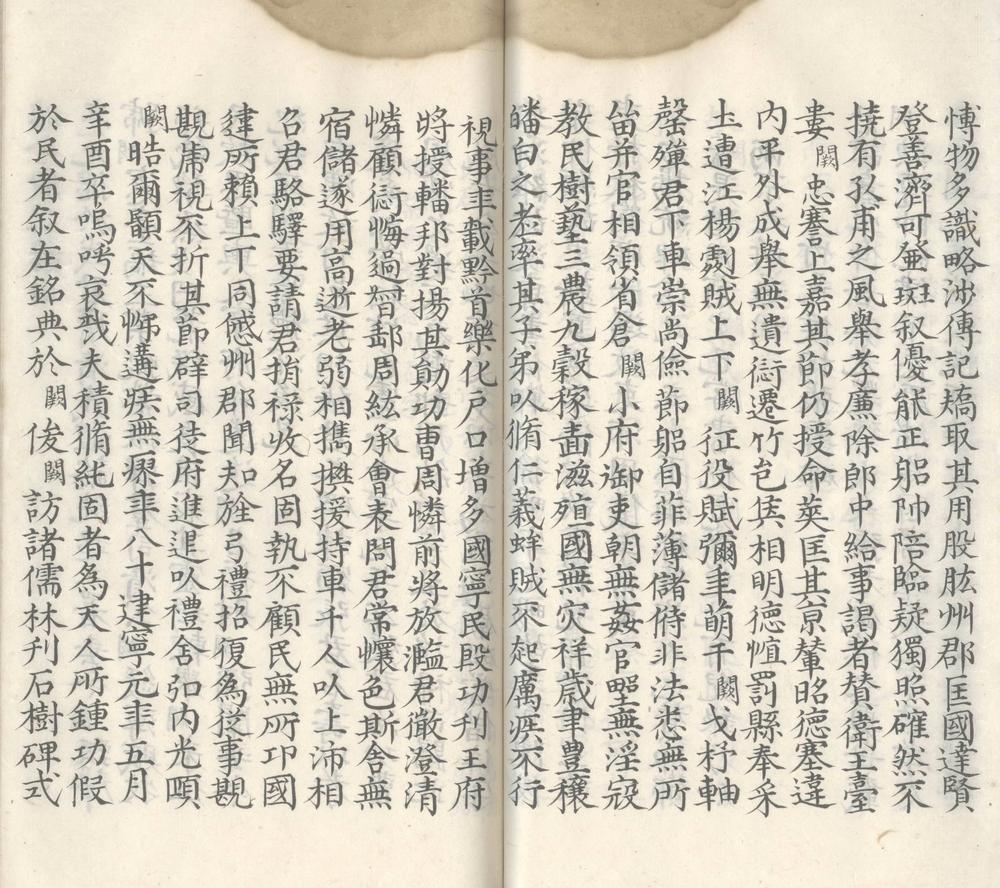 愽物多識略涉傳記矯取其用股肱州郡匡國達賢
登善濟可登斑叙優能正躬帥陪臨疑獨照確然不
撓有孔甫之風舉孝廉除郎中給事謁者賛衛王臺
婁闕忠謇上嘉其節仍授命莢匡其京輦昭德塞違
內平外成舉無遺諐遷竹邑侯相明德慎罰縣奉采
土遭江楊劇賊上下闕征役賦彌年萌于闕戈杼軸
罄殫君下車崇尚儉節躬自菲薄儲偫非法悉無所
畄并官相領省倉闕小府御吏朝無姦官野無淫寇
教民樹藝三農九穀稼嗇滋殖國無灾祥歲聿豊穰
皤白之老率其子弟以脩仁義蛑賊不起厲疾不行
視事年載黔首樂化戶口增多國寧民殷功刊王府
將授轓邦對揚其勛功曹周憐前將放濫君徹澄清
憐顧諐悔過晉郙周紘承會表問君常懷色斯舍無
宿儲遂用高逝老弱相攜攀援持車千人以上沛相
召君駱驛要請君捐祿收名固執不顧民無所卬國
違所賴上下同慽州郡聞知旌弓禮招復為從事覬
覬帍視不折其節辟司徒府進退以禮舍弘內光頤
闕晧爾顥天不惸遘疾無瘳年八十建寧元年五月
辛酉卒嗚呼哀哉夫積脩純固者為天人所鍾功假
於民者叙在銘典於闕俊闕訪諸儒林刋石樹碑式